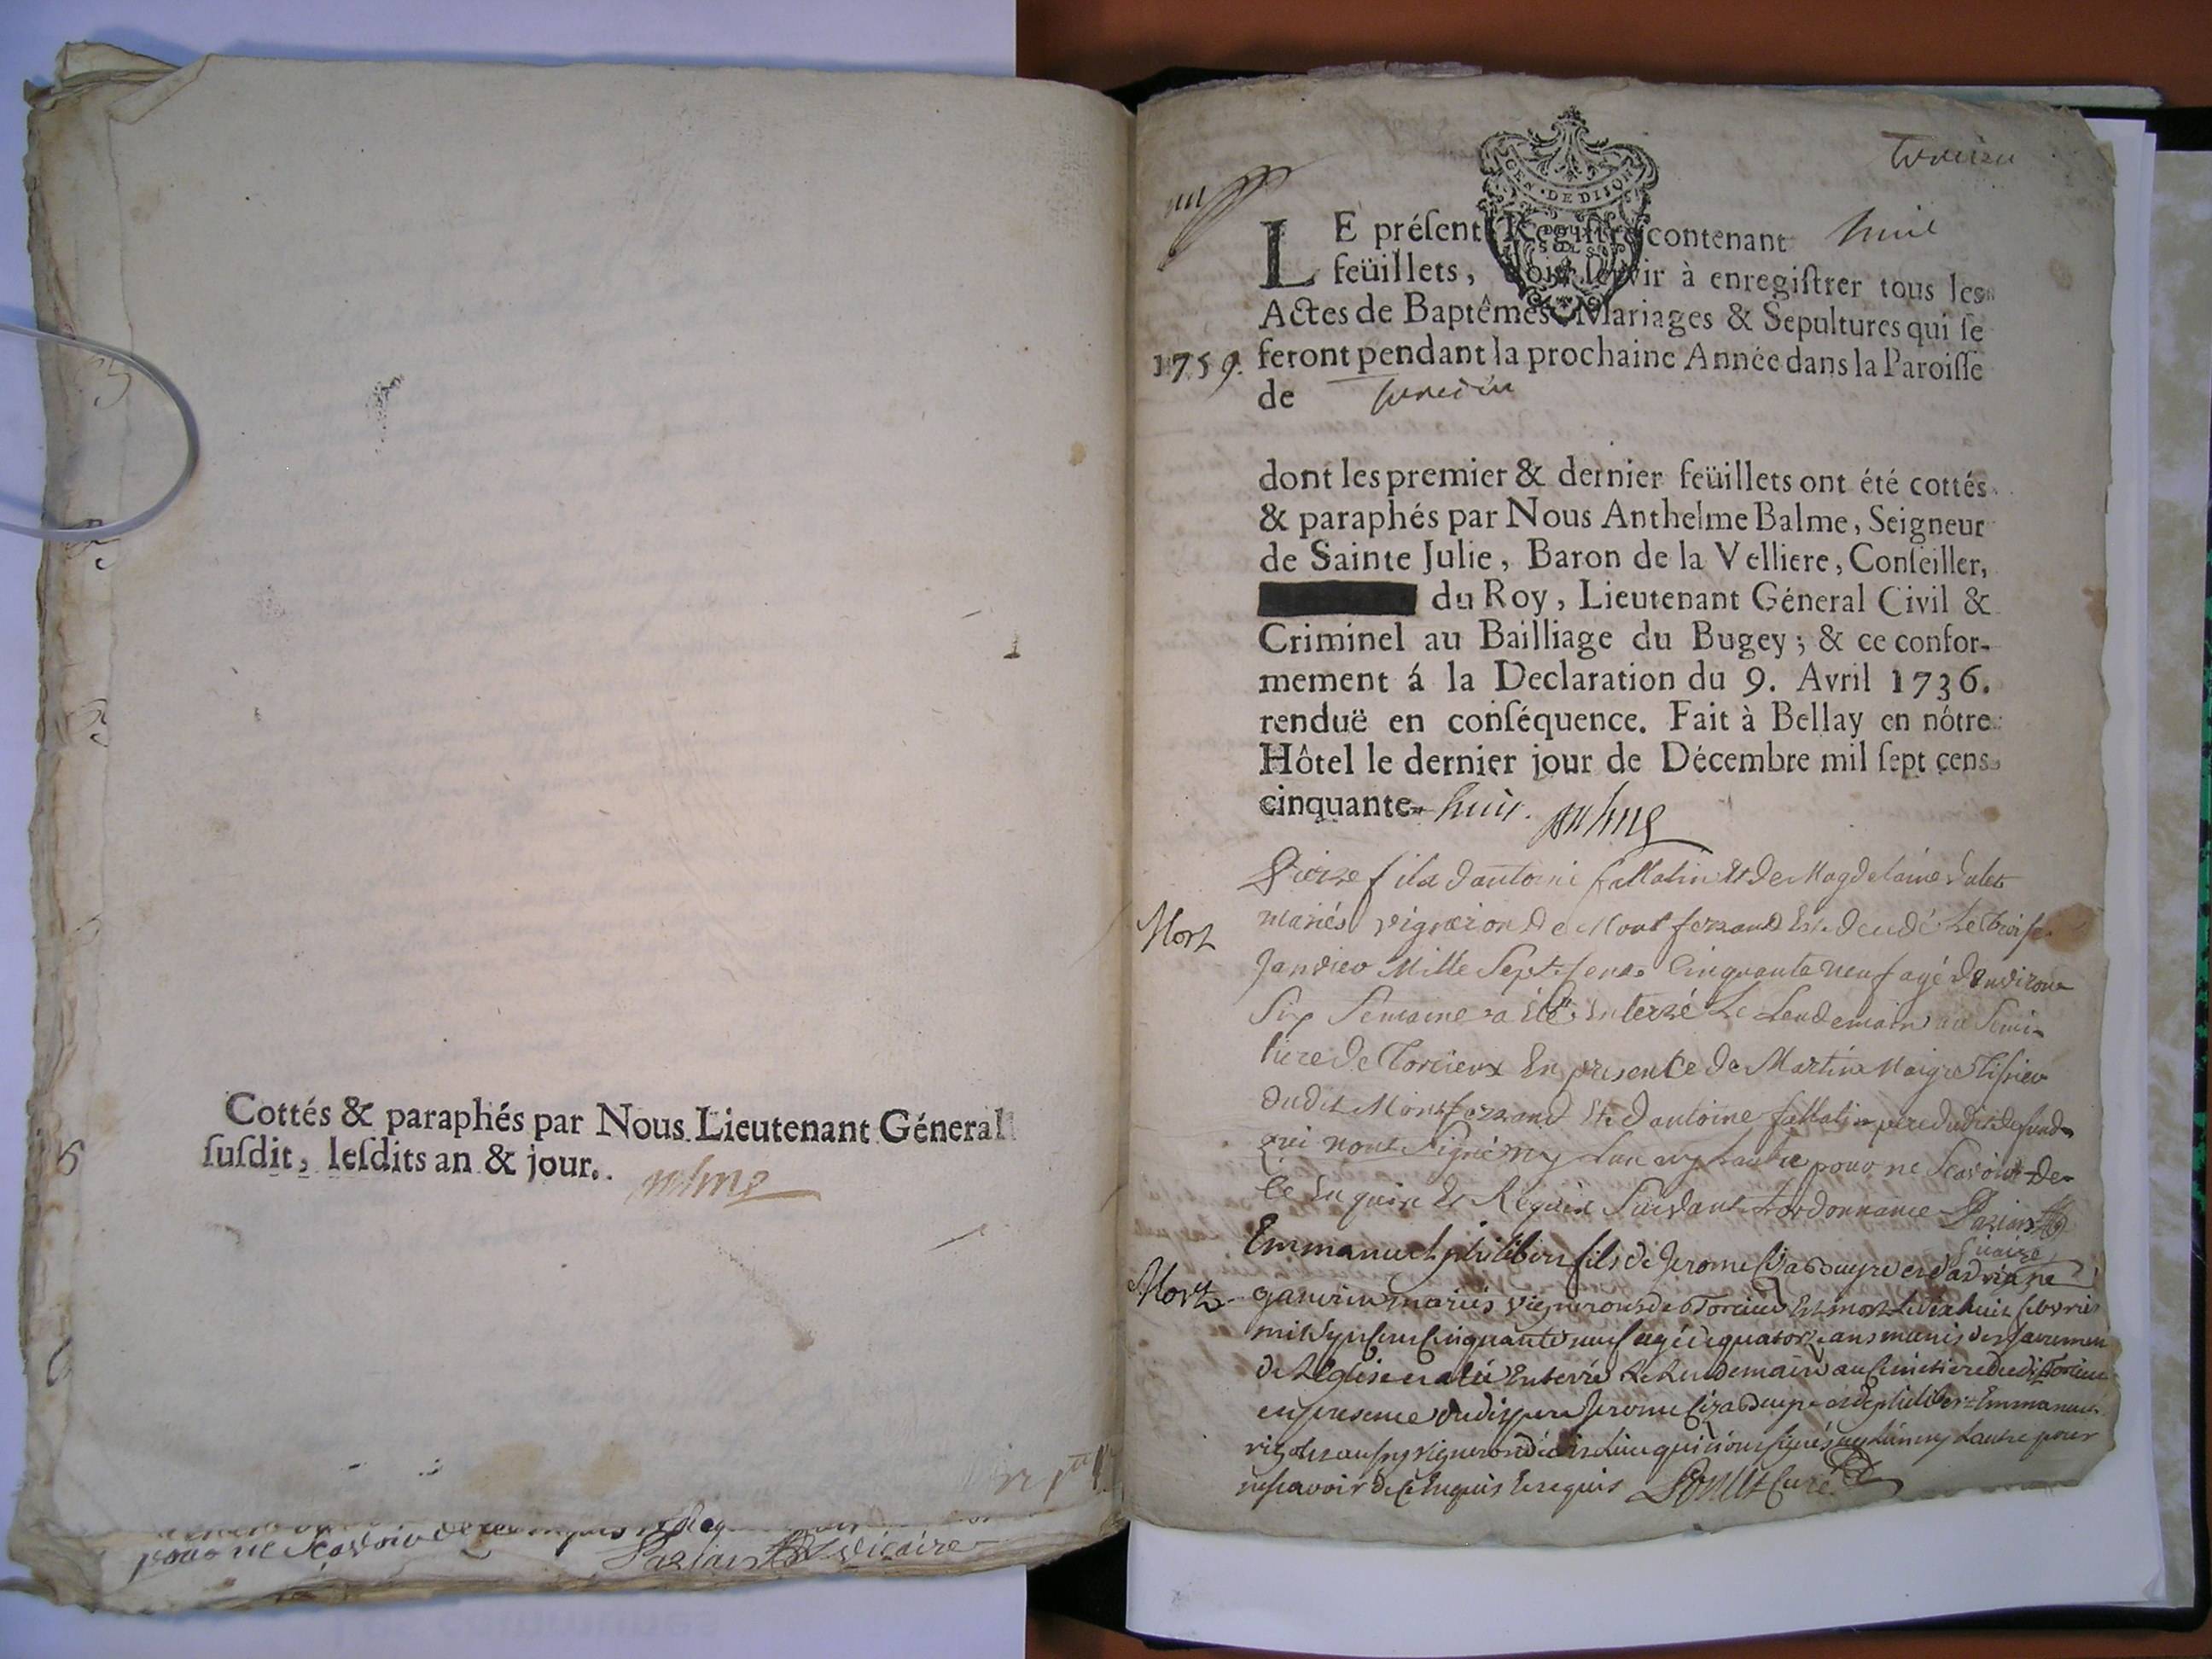 Cottés & paraphés par Nous Lieutenant Géneral
ſuſdit, leſdits an & jour.
pour ne Sçavoir de ce enquis
vicaire
GEN. DE DIJON
LE préſent Regiſtre contenant huit
feüillets, doit ſervir à enregiſtrer tous les
Actes de Baptêmes Mariages & Sepultures qui ſe
1759. feront pendant la prochaine Année dans la Paroiſſe
de Torcieu
dont les premier & dernier feüillets ont été cottés
& paraphés par Nous Anthelme Balme, Seigneur
de Sainte Julie, Baron de la Velliere, Conſeiller,
du Roy, Lieutenant Géneral Civil &
Criminel au Bailliage du Bugey; & ce confor-
mement á la Declaration du 9. Avril 1736.
renduë en conſéquence. Fait à Bellay en nótre
Hôtel le dernier jour de Décembre mil ſept cens
cinquante-huit. Balme
Pierre fils d'antoine fallatin Et de Magdelaine
Mort
mariés vigneron de Montferrand Est decedé Le troise
Janvier Mille Sept Cents Cinquante neuf agé d'environ
Six Semaine a été Enterré Le Lendemain au Semi-
tiere de Torcieux En presence de Martin Maigre Tisrieu
dudit Montferrand Et d'antoine fallatin pere dudit defund
qui n'ont Signé ny L'un ny L'autre pour ne Scavoir De
Ce Enquis Et Requis Suivant L'ordonnance
vicaire
Emmanuel philibert fils de Jerome et d'adriane
Mort
mariés vignerons de Torcieu Est mort le dix huit febvrier
mil Sept Cent Cinquante neuf agé de quatorze ans munis des Sacremen
de L'église et a été Enterré Le Lendemain au Cimetiere dudit Torcieu
en presence dudit pere Jerome et de philibert Emmanuel
aussy vigneron dudit Lieu qui n'ont signés ny L'un ny L'autre pour
ne scavoir de Ce Enquis Et requis Curé